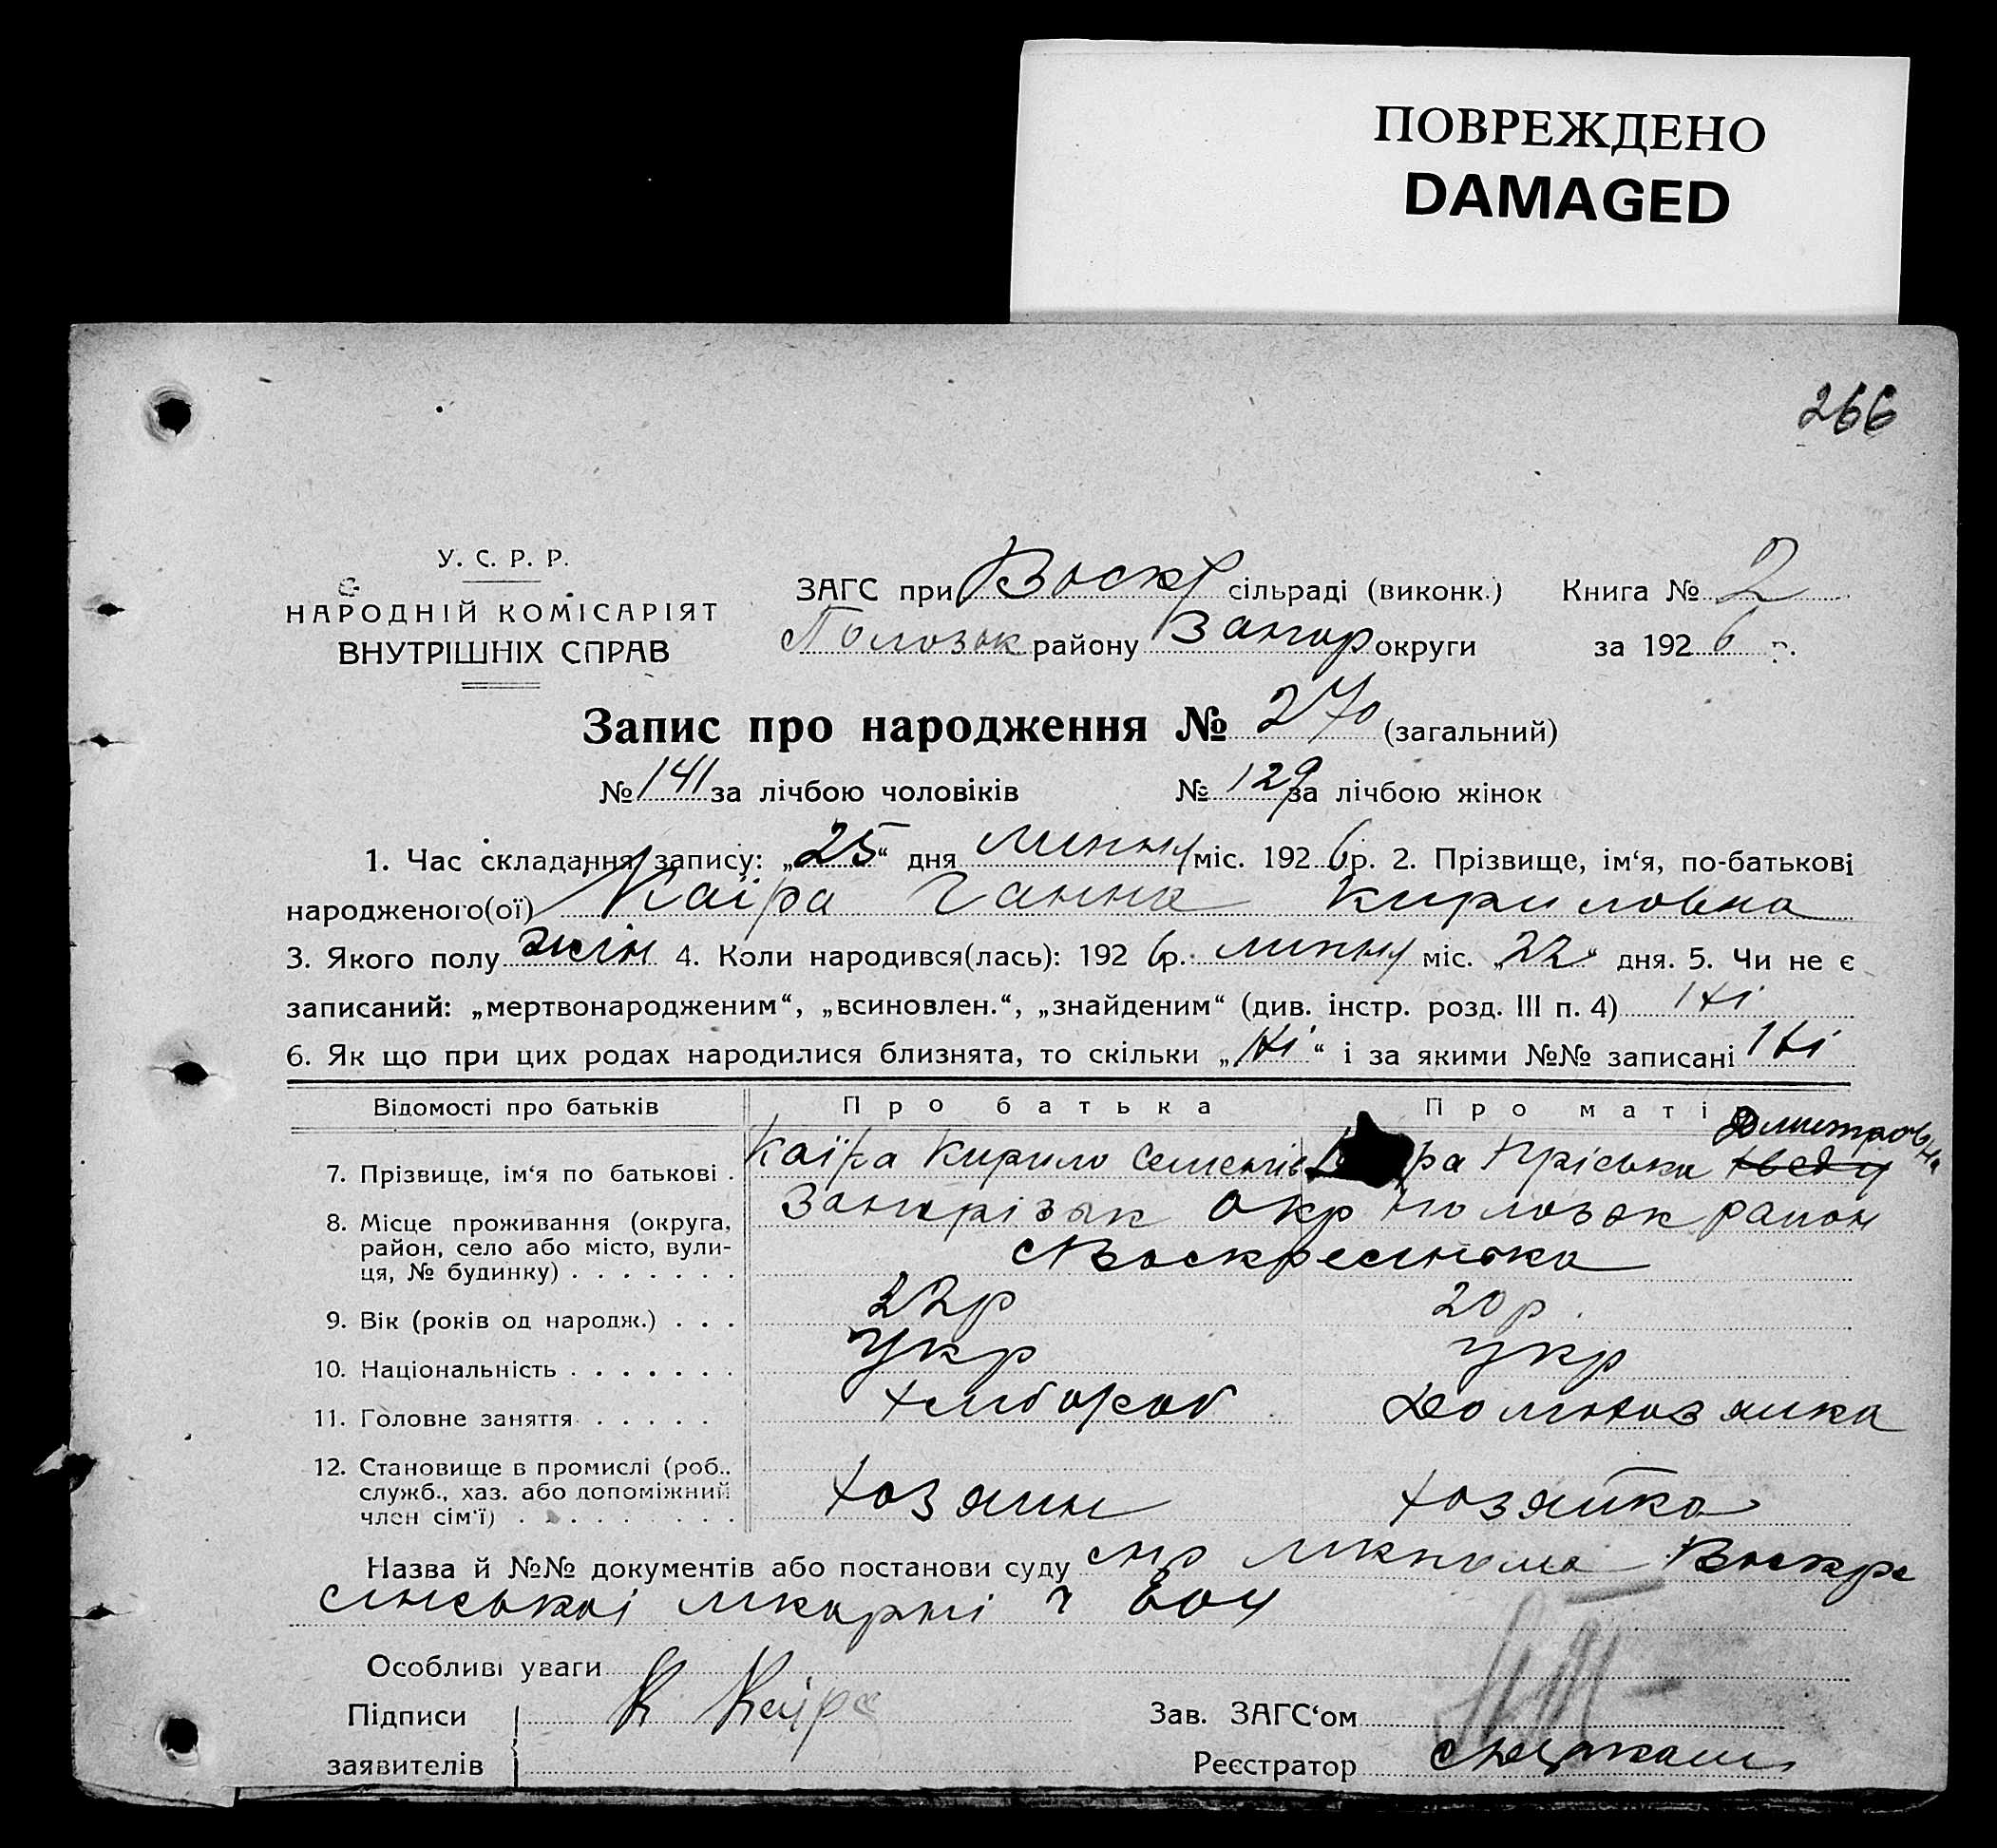 ПОВРЕЖДЕНО
DAMAGED
266
У. С. Р. Р.
НАРОДНІЙ КОМІСАРІЯТ
ВНУТРІШНІХ СПРАВ
ЗАГС при Воскр сільраді (виконк.) Книга № 2
Полозьк району Запор округи за 1926 р.
Запис про народження № 270 (загальний)
№ 141 за лічбою чоловіків № 129 за лічбою жінок
1. Час складання запису: „25“ дня липня міс. 1926 р. 2. Прізвище, ім‘я, по-батькові
народженого(ої) Каїра Ганна Кириловна
3. Якого полу жін 4. Коли народився(лась): 1926 р. липня міс. „22“ дня. 5. Чи не є
записаний: „мертвонародженим“, „всиновлен.“, „знайденим“ (див. інстр. розд. III п. 4) Ні
6. Як що при цих родах народилися близнята, то скільки „Ні“ і за якими №№ записані Ні
Відомості про батьків Про батька Про матір
Дмитровна
7. Прізвище, ім‘я по батькові . Каїра Кирило Семенів ра Пріська
8. Місце проживання (округа, Запорізьк Окр Полозьк район
район, село або місто, вули- Воскресенька
ця, № будинку) . . . . . . .
9. Вік (років од народж.) . . . 22р 20р.
10. Національність . . . . . . . Укр Укр
11. Головне заняття . . . . . Хлібороб Домохазяйка
12. Становище в промислі (роб.,
служб., хаз. або допоміжний Хозяин Хозяйка
член сім‘ї) . . . . . . . . .
Назва й №№ документів або постанови суду Воскре
сенської лікарні 604
Особливі уваги
Підписи К Каїра Зав. ЗАГС‘ом
заявителів Реєстратор